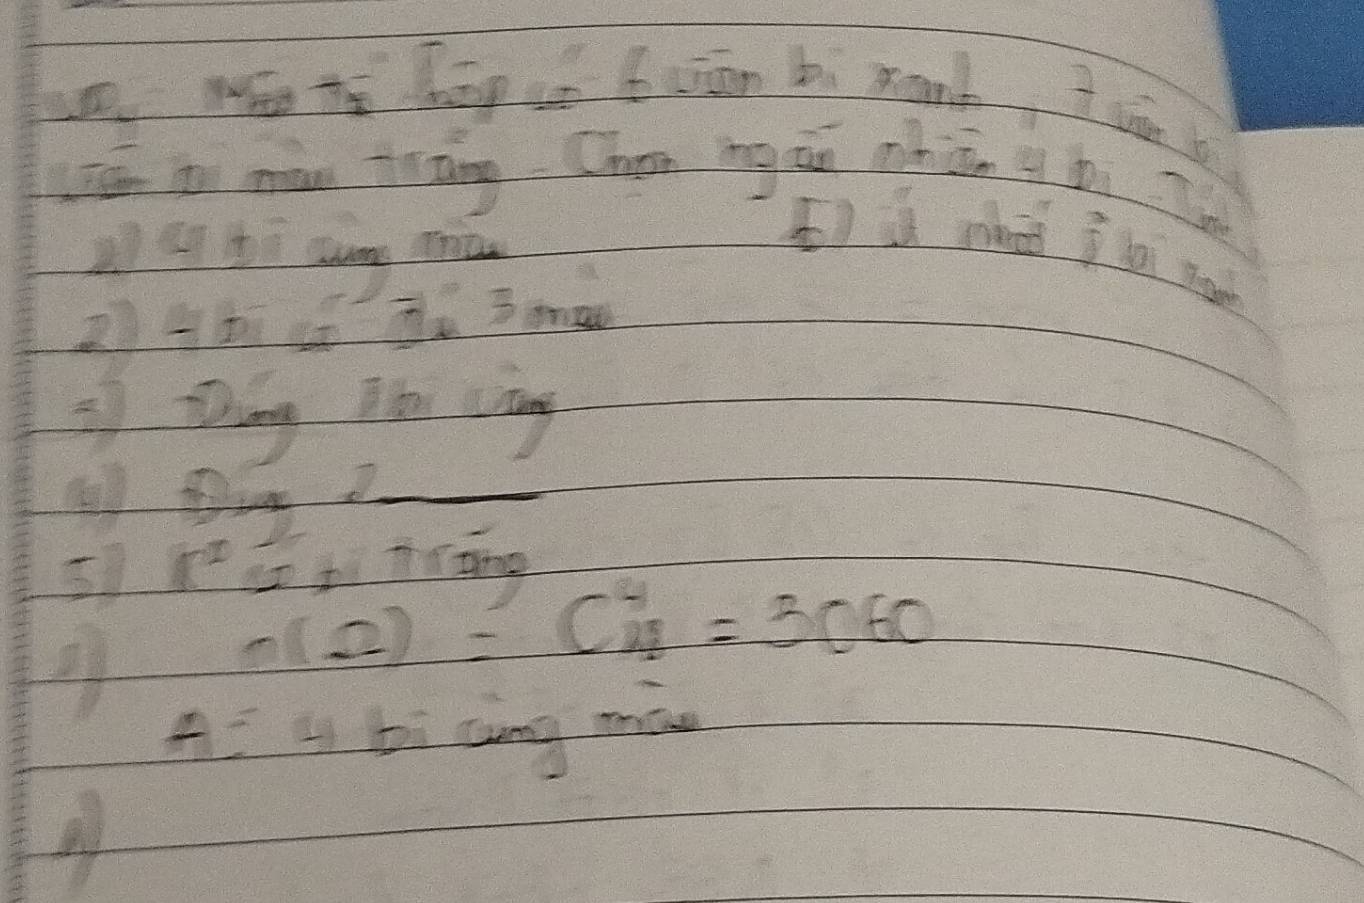 hộp có 6 viên bi xanh, 7 viên b
viên bi màu trắng. Chọn ngẫu nhiên 4 bi. Tính
1) 4 bi cùng màu 6) ít nhất 1 bi xanh
2) 4 bi có đủ 3 màu
3) Đúng 1 bi vàng
4) Đúng 2 ———
5) K° có bi trắng
1) n(Ω) = C⁴₁₈ = 3060
A: 4 bi cùng màu
2)